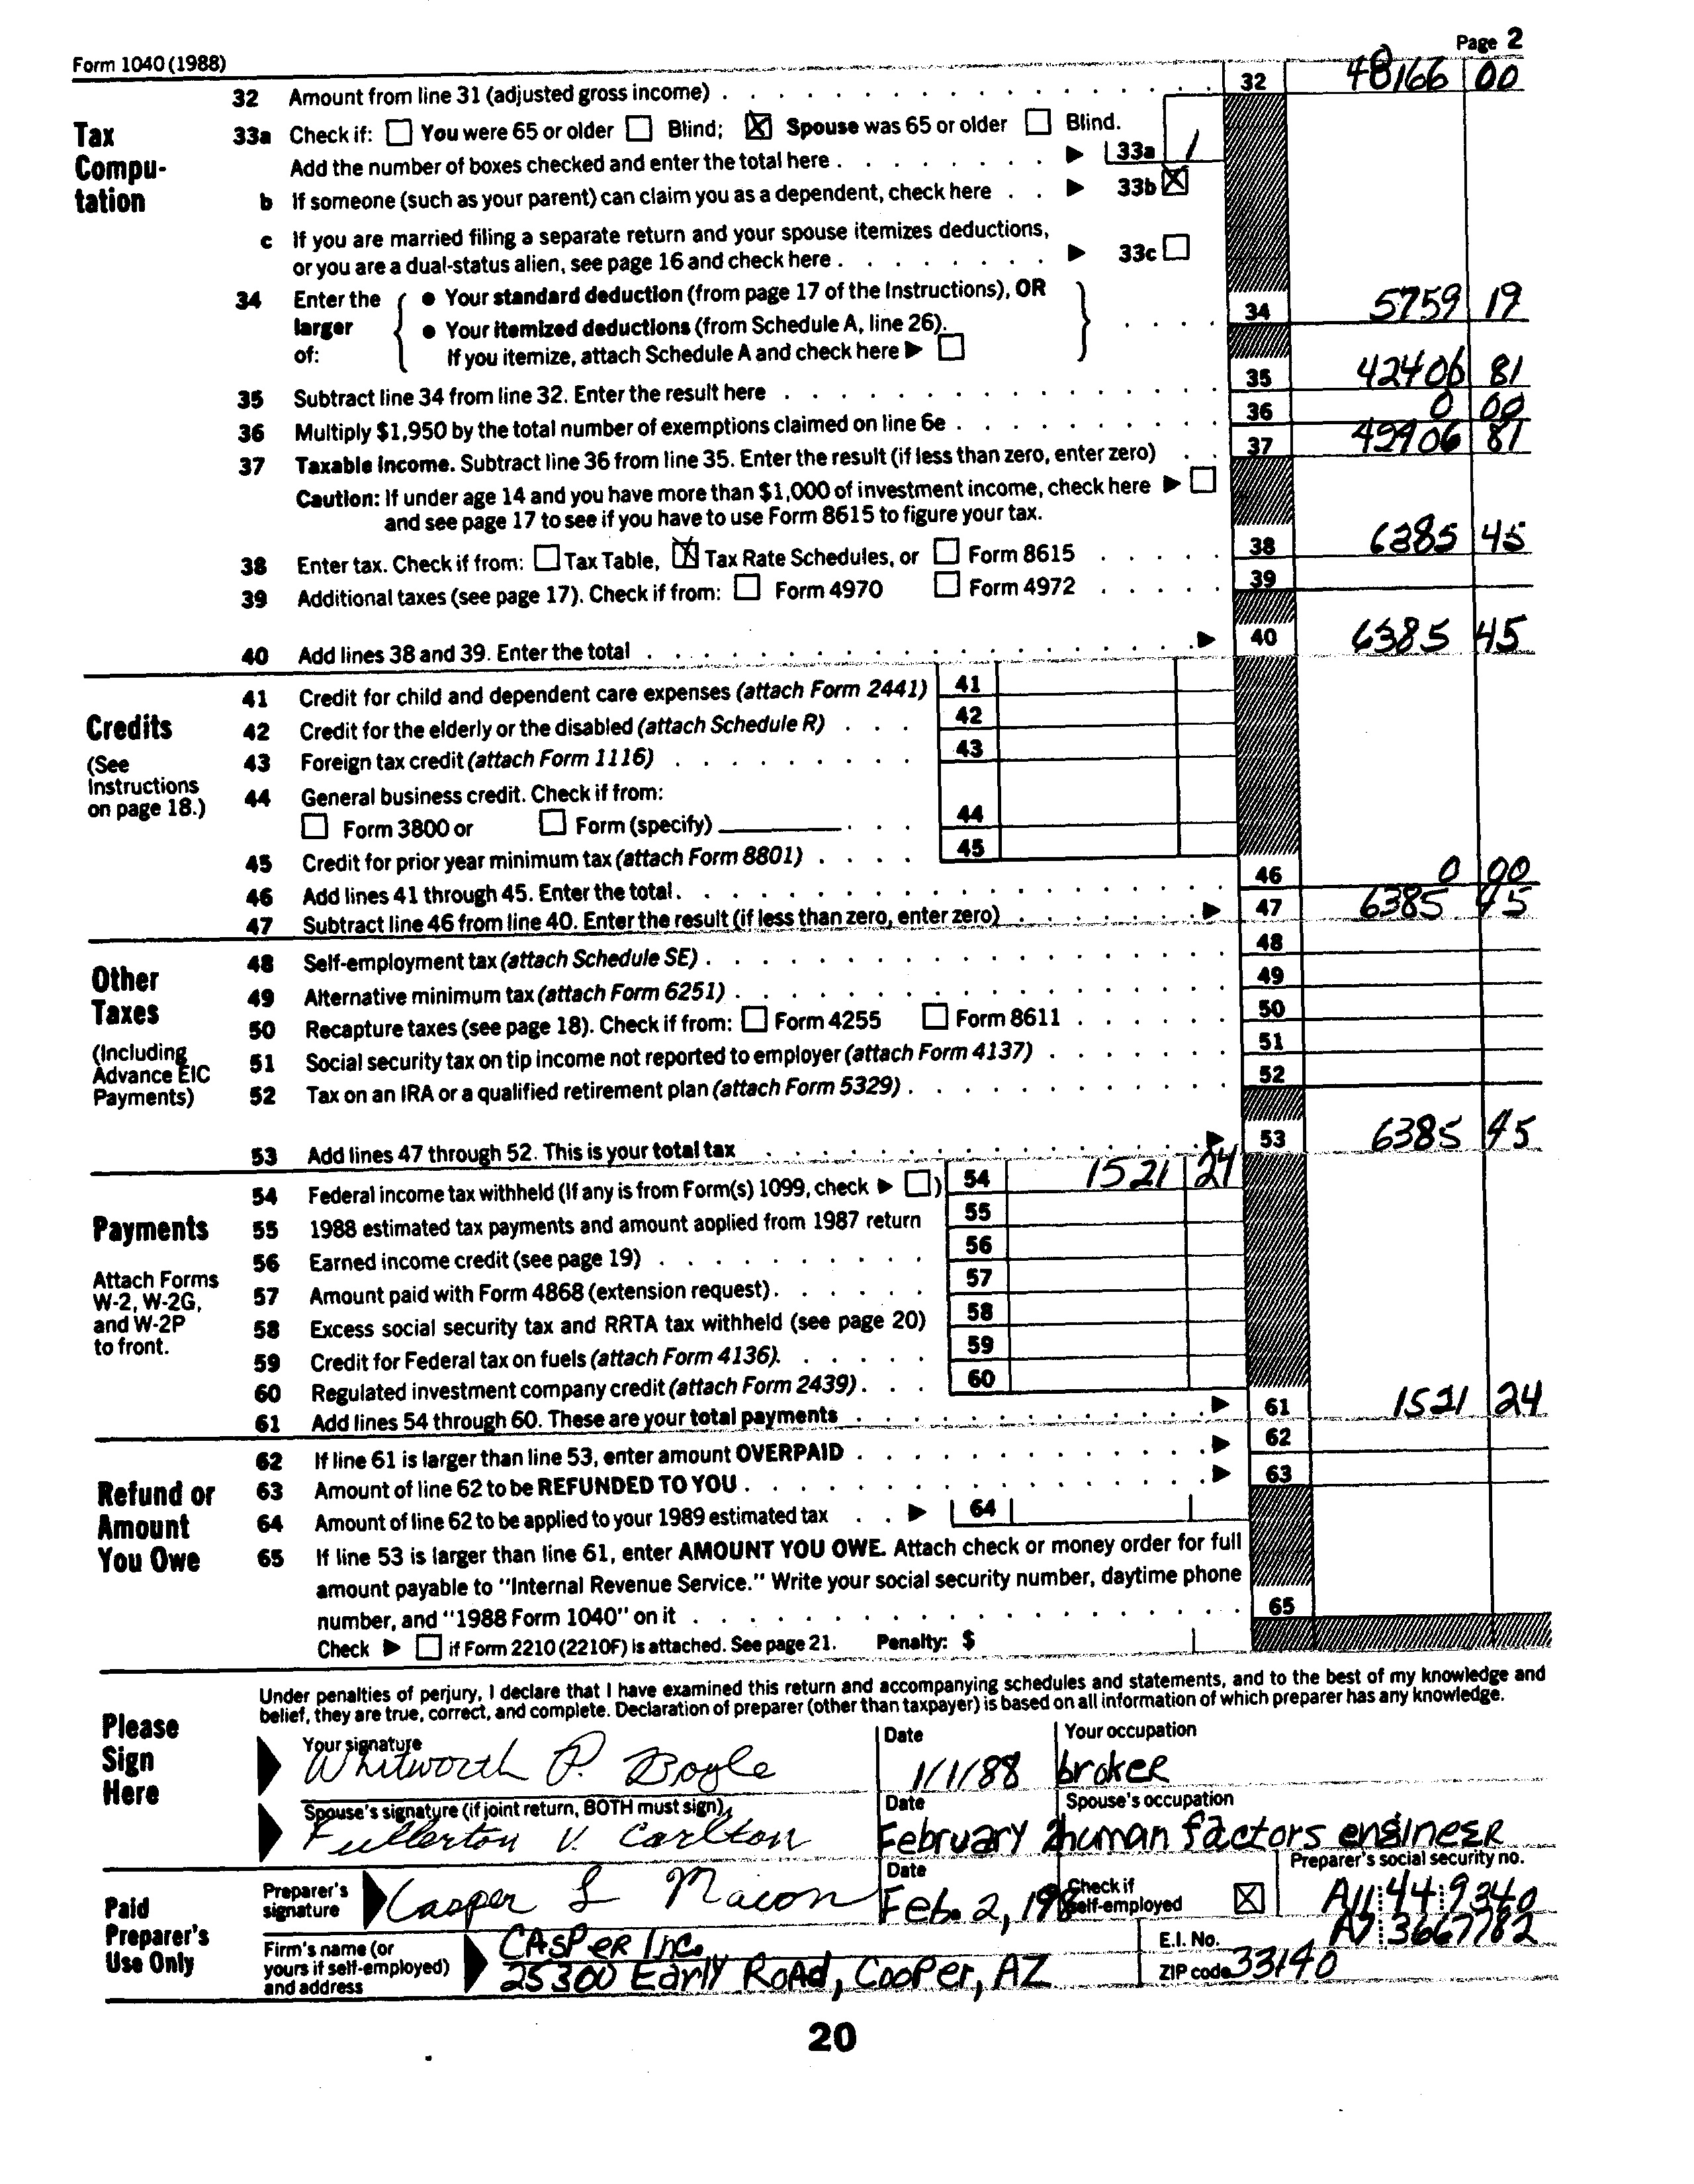 Form 1040 (1988)
Page 2
32 Amount from line 31 (adjusted gross income) 32 48166 00
Tax Compu-tation
33a Check if: You were 65 or older Blind; Spouse was 65 or older Blind.
Add the number of boxes checked and enter the total here 33a 1
b If someone (such as your parent) can claim you as a dependent, check here 33b
c If you are married filing a separate return and your spouse itemizes deductions,
or you are a dual-status alien, see page 16 and check here 33c
34 Enter the larger of:
• Your standard deduction (from page 17 of the Instructions), OR
• Your itemized deductions (from Schedule A, line 26).
If you itemize, attach Schedule A and check here
34 5759 19
35 Subtract line 34 from line 32. Enter the result here 35 42406 81
36 Multiply $1,950 by the total number of exemptions claimed on line 6e 36 0 00
37 Taxable income. Subtract line 36 from line 35. Enter the result (if less than zero, enter zero) 37 42406 81
Caution: If under age 14 and you have more than $1,000 of investment income, check here
and see page 17 to see if you have to use Form 8615 to figure your tax.
38 Enter tax. Check if from: Tax Table, Tax Rate Schedules, or Form 8615 38 6385 45
39 Additional taxes (see page 17). Check if from: Form 4970 Form 4972 39
40 Add lines 38 and 39. Enter the total 40 6385 45
Credits
(See Instructions on page 18.)
41 Credit for child and dependent care expenses (attach Form 2441) 41
42 Credit for the elderly or the disabled (attach Schedule R) 42
43 Foreign tax credit (attach Form 1116) 43
44 General business credit. Check if from:
Form 3800 or Form (specify) 44
45 Credit for prior year minimum tax (attach Form 8801) 45
46 Add lines 41 through 45. Enter the total 46 0 00
47 Subtract line 46 from line 40. Enter the result (if less than zero, enter zero) 47 6385 45
Other Taxes
(Including Advance EIC Payments)
48 Self-employment tax (attach Schedule SE) 48
49 Alternative minimum tax (attach Form 6251) 49
50 Recapture taxes (see page 18). Check if from: Form 4255 Form 8611 50
51 Social security tax on tip income not reported to employer (attach Form 4137) 51
52 Tax on an IRA or a qualified retirement plan (attach Form 5329) 52
53 Add lines 47 through 52. This is your total tax 53 6385 45
Payments
Attach Forms W-2, W-2G, and W-2P to front.
54 Federal income tax withheld (If any is from Form(s) 1099, check ) 54 1521 24
55 1988 estimated tax payments and amount applied from 1987 return 55
56 Earned income credit (see page 19) 56
57 Amount paid with Form 4868 (extension request) 57
58 Excess social security tax and RRTA tax withheld (see page 20) 58
59 Credit for Federal tax on fuels (attach Form 4136). 59
60 Regulated investment company credit (attach Form 2439) 60
61 Add lines 54 through 60. These are your total payments 61 1521 24
Refund or Amount You Owe
62 If line 61 is larger than line 53, enter amount OVERPAID 62
63 Amount of line 62 to be REFUNDED TO YOU 63
64 Amount of line 62 to be applied to your 1989 estimated tax 64
65 If line 53 is larger than line 61, enter AMOUNT YOU OWE. Attach check or money order for full
amount payable to "Internal Revenue Service." Write your social security number, daytime phone
number, and "1988 Form 1040" on it 65
Check if Form 2210 (2210F) is attached. See page 21. Penalty: $
Please Sign Here
Under penalties of perjury, I declare that I have examined this return and accompanying schedules and statements, and to the best of my knowledge and
belief, they are true, correct, and complete. Declaration of preparer (other than taxpayer) is based on all information of which preparer has any knowledge.
Your signature Date Your occupation
Whitworth P. Boyle 1/1/88 broker
Spouse's signature (if joint return, BOTH must sign) Date Spouse's occupation
Fullerton V. Carlton February 2 human factors engineer
Paid Preparer's Use Only
Preparer's signature Casper L Macon
Date Feb. 2, 198
Check if self-employed
Preparer's social security no. A11 44 9340
Firm's name (or yours if self-employed) and address
Casper Inc.
25300 Early Road, Cooper, AZ
E.I. No. A7 3667782
ZIP code 33140
20